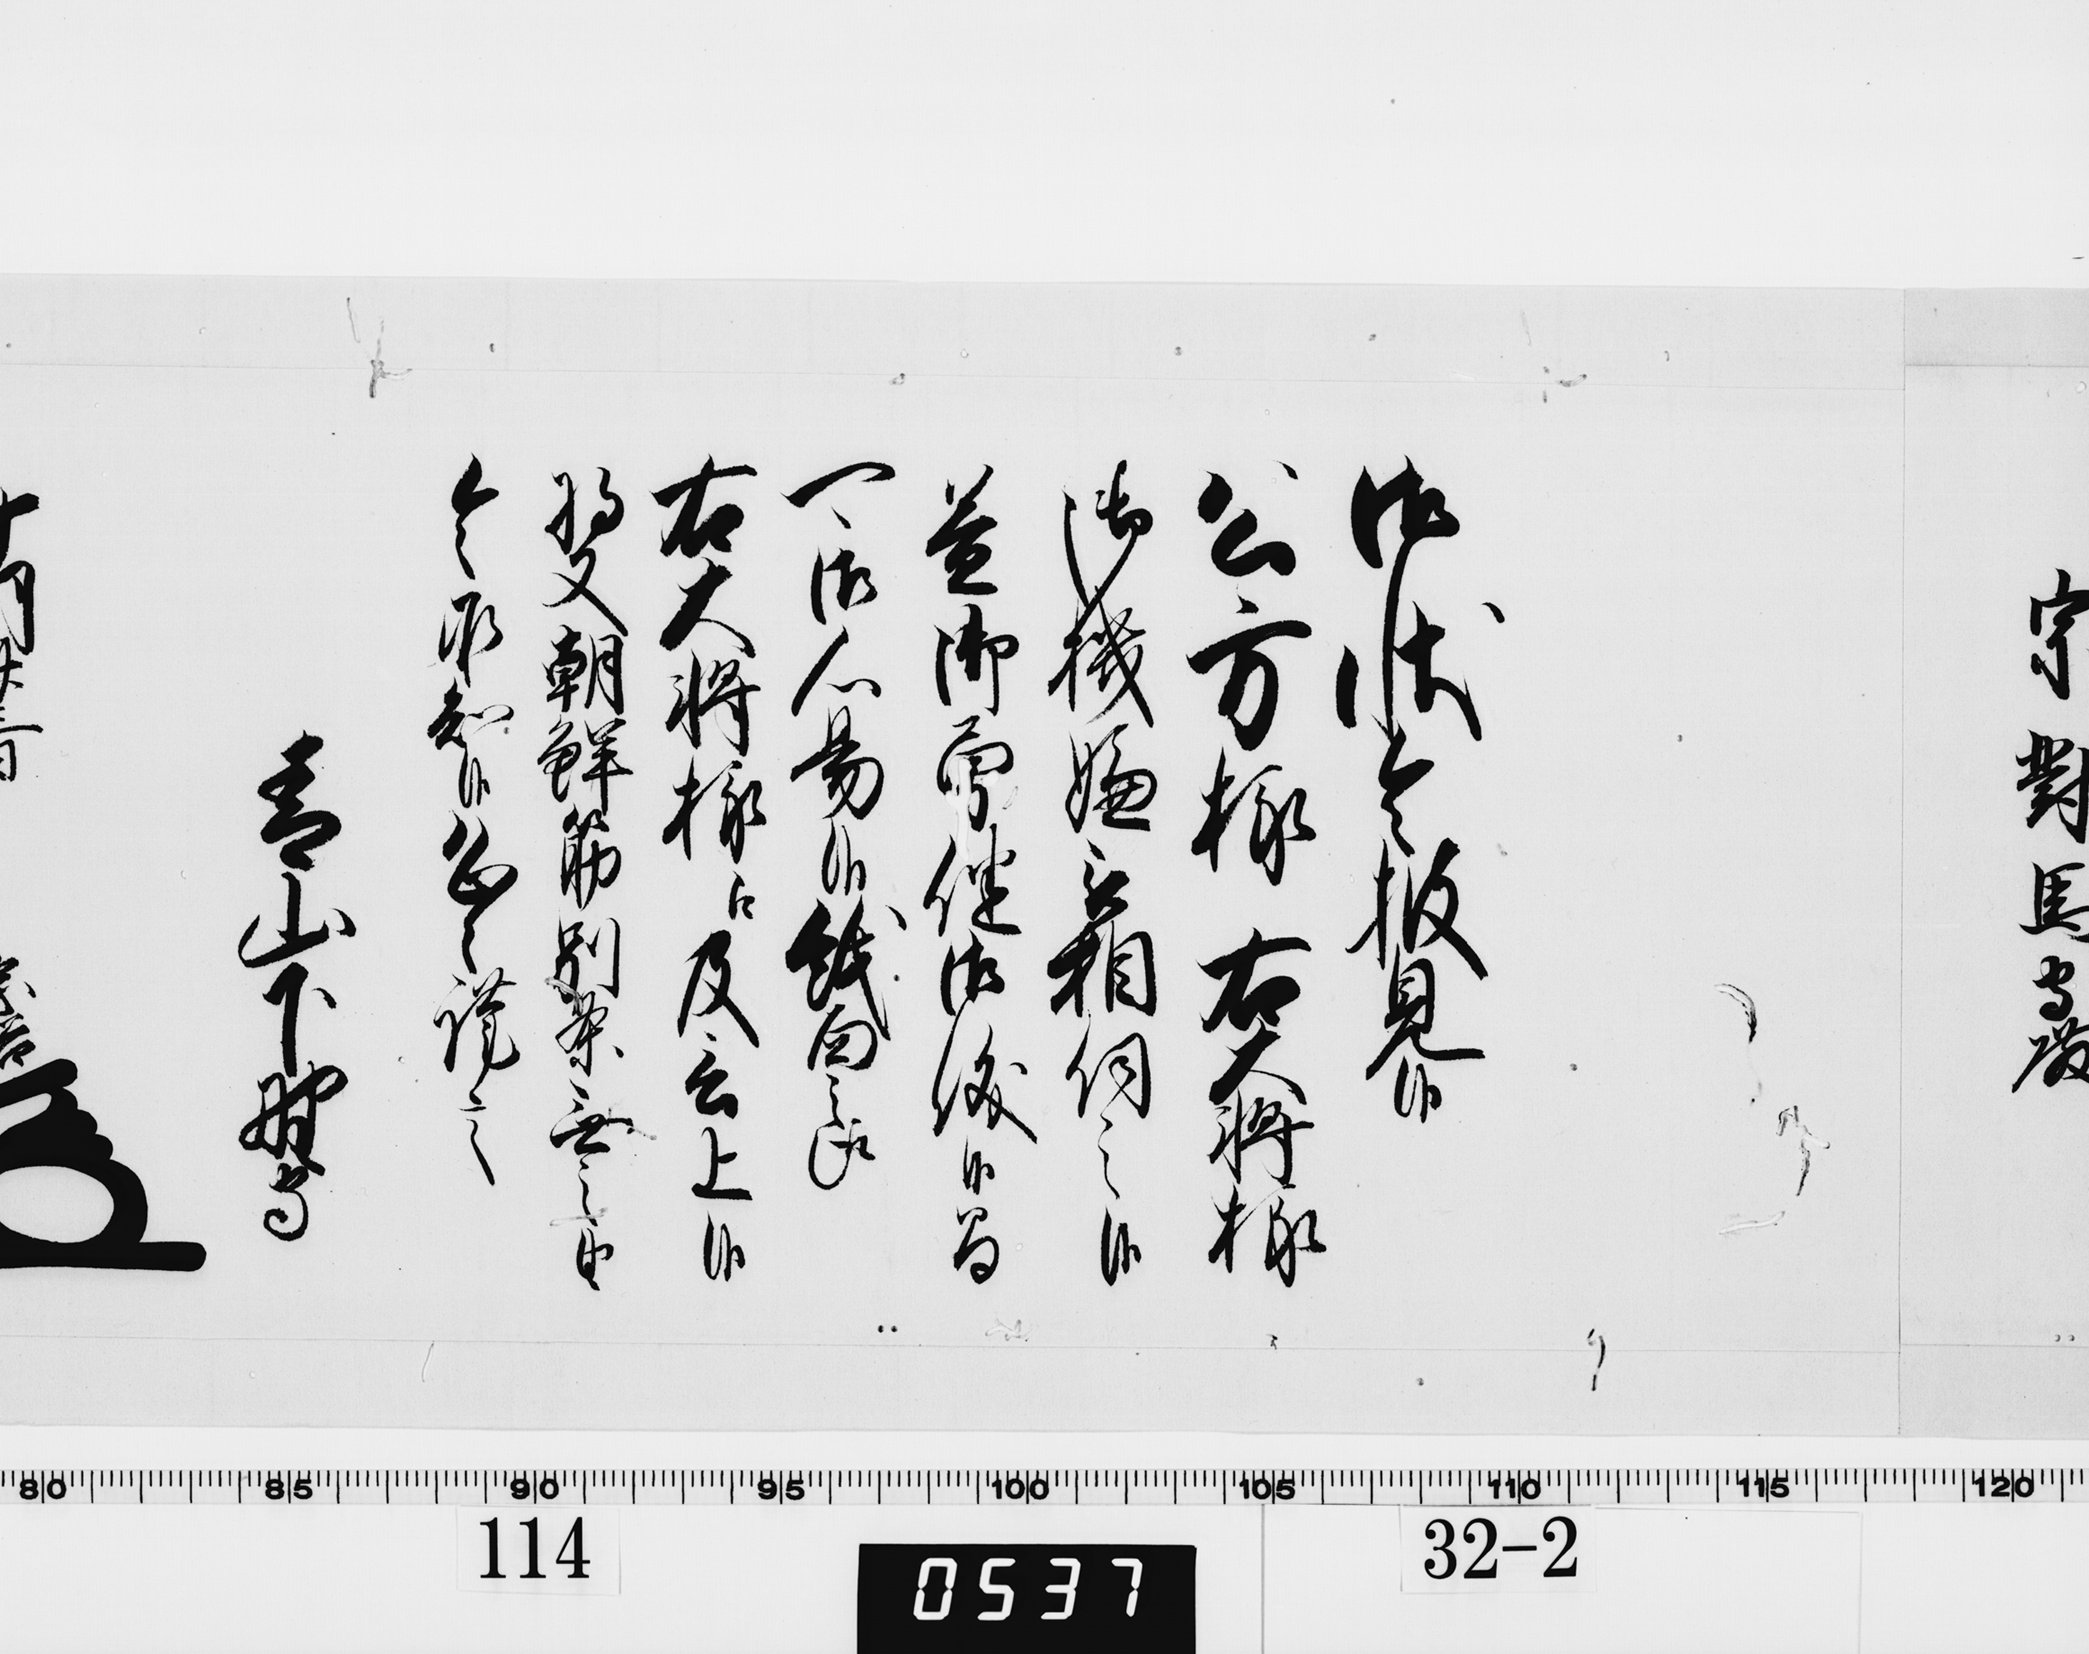 宗對馬守殿
御状令披見候
公方様 右大将様
御機嫌被相伺之候
益御勇健御
可御心易候紙面之趣
右大将様江及言上候
将又朝鮮筋別条無之由
令承知候恐々謹言
青山下野守
十月廿三日
114
0537
32-2
80 85 90 95 100 105 110 115 120